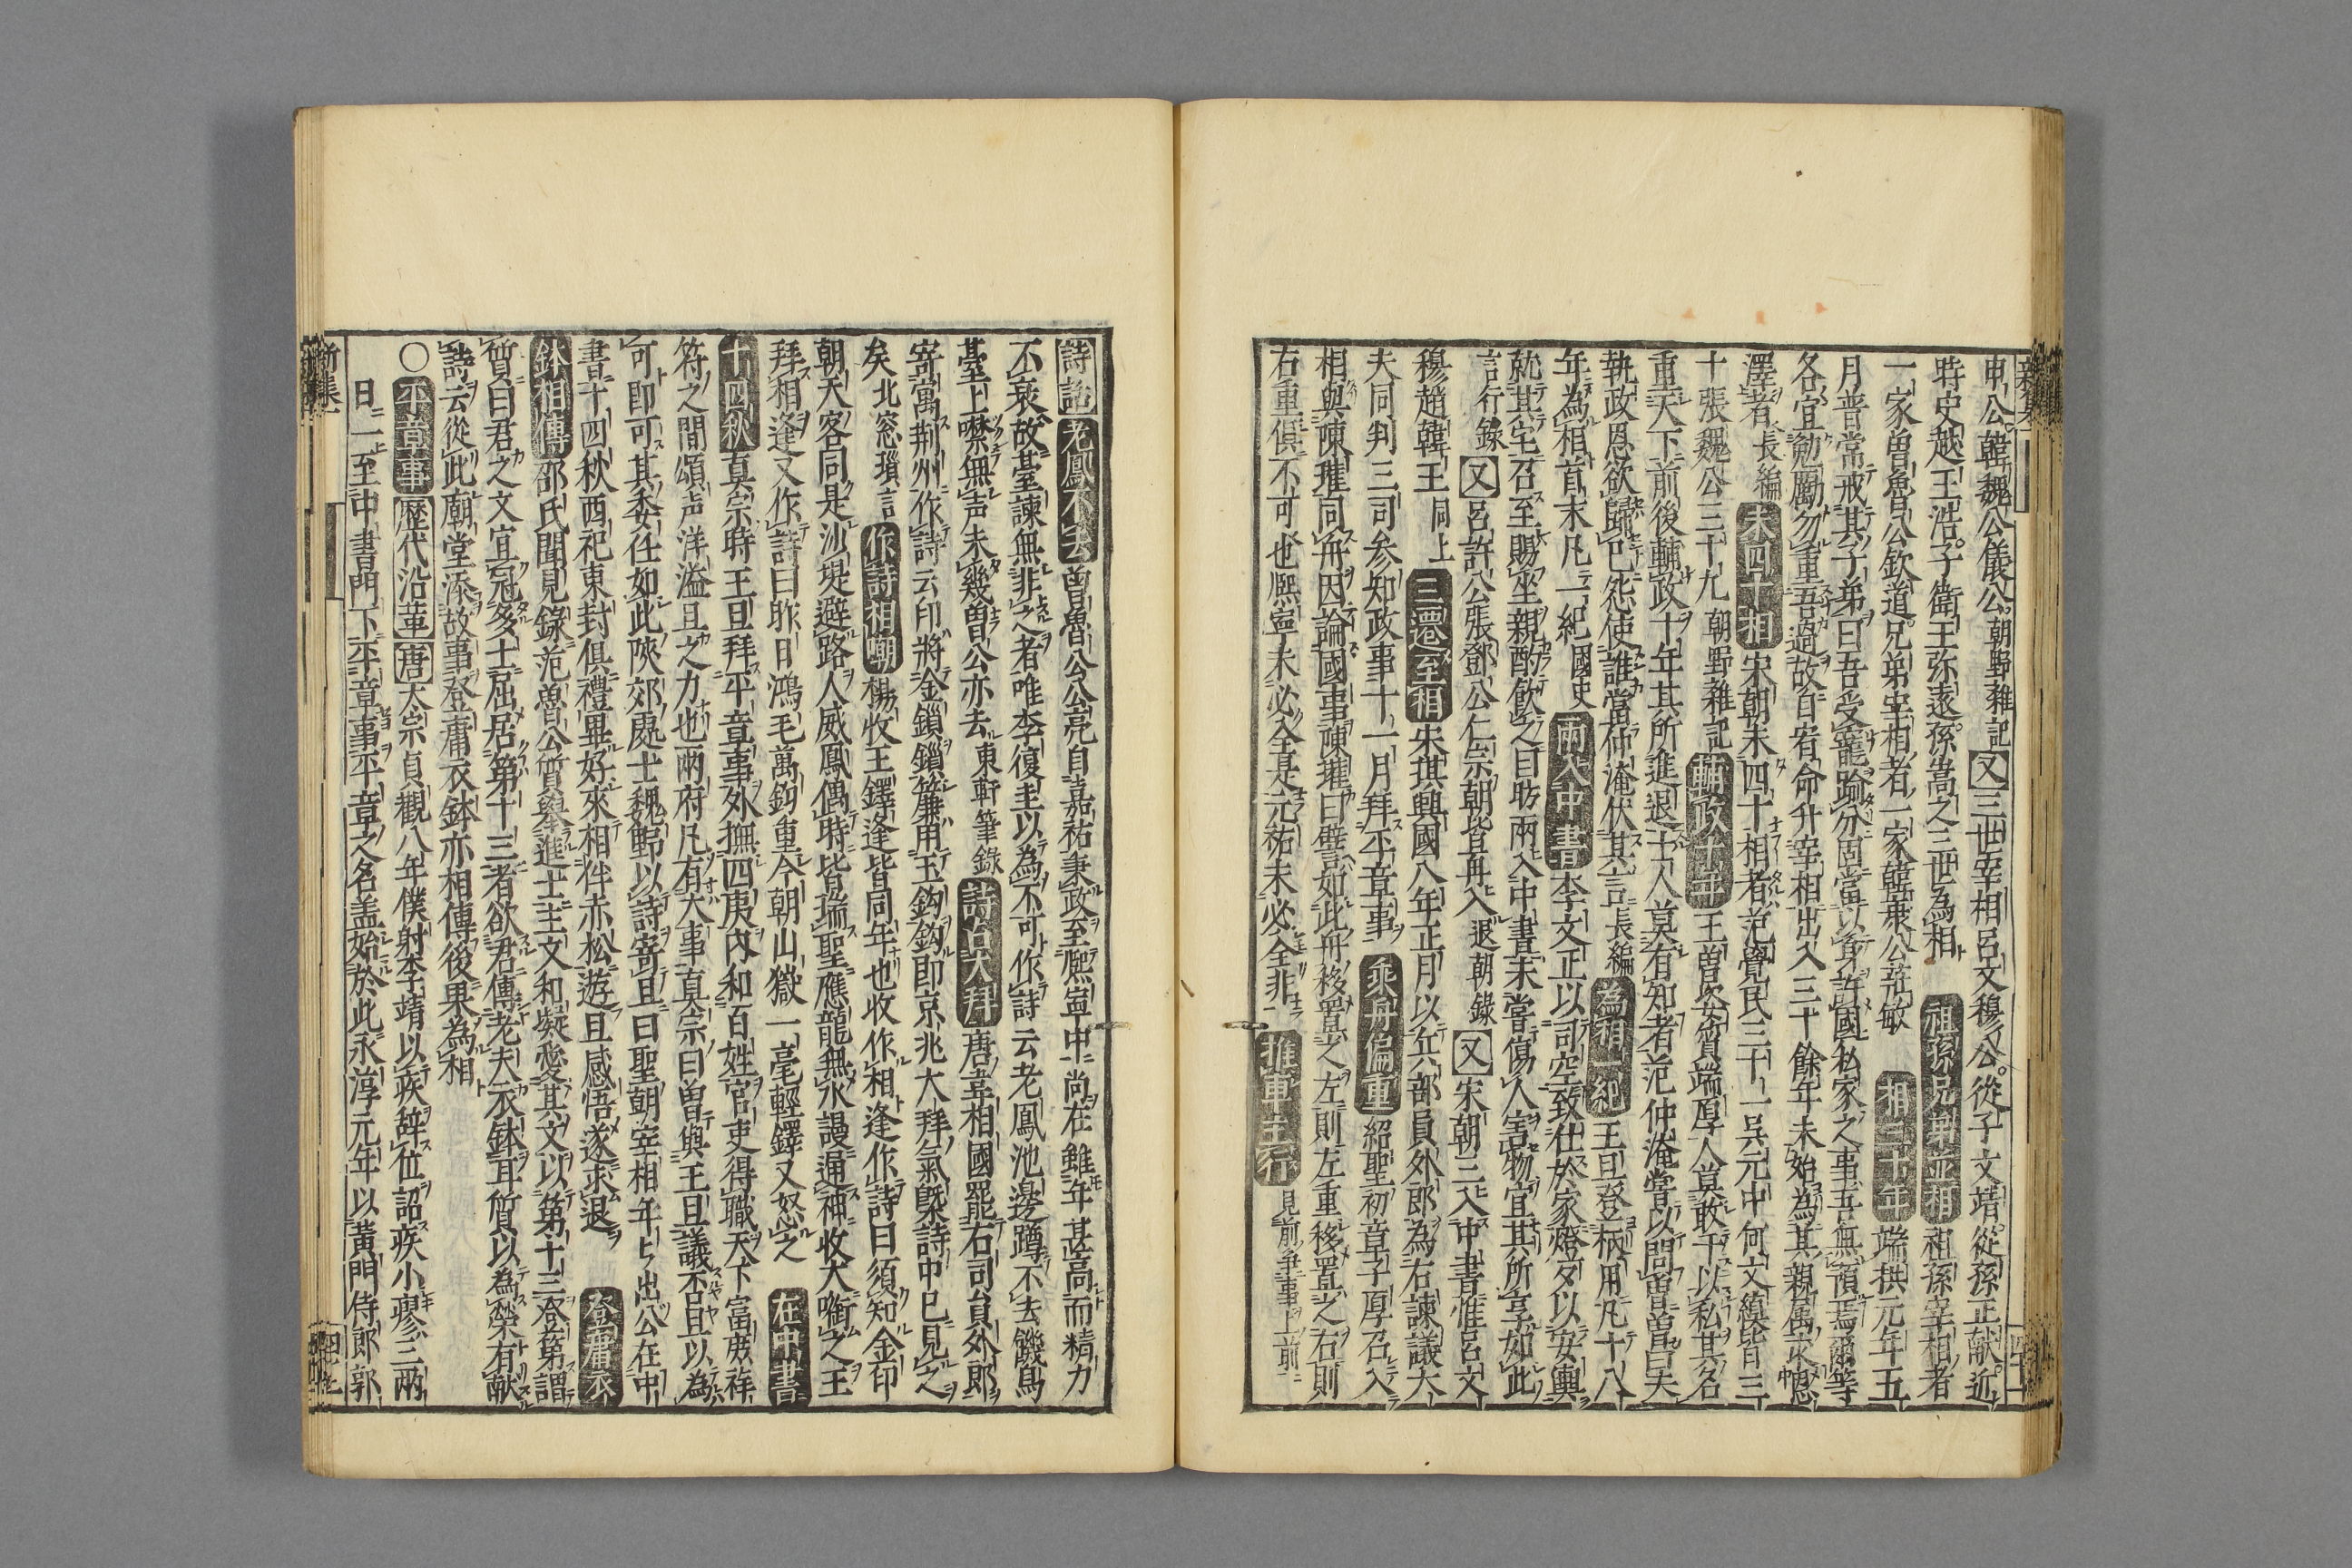 申公韓魏公儀公朝野雜記又三世宰相呂文穆公從子文靖從孫正献近
時史越王浩子衛王弥遠孫嵩之三世為相祖孫兄弟並相祖孫宰相者
一家曽魯公欽道兄弟宰相者一家韓荘敏相三十年端拱元年五
月普常戒其子弟曰吾受寵踰分固當以身許國私家之事吾無預焉爾等
各宜勉勵勿重吾過故自宥命升宰相出入三十餘年未始為其親属求恩
澤者長編未四十相宋朝未四十相者范覺民三十一呉元中何文縝皆三
十張魏公三十九朝野雜記輔政十年王曽資質端厚人莫敢干以私其名
重天下前後輔政十年其所進退士人莫有知者范仲淹嘗以問曽曽曰夫
執政恩欲歸己怨使誰當仲淹伏其言長編為相一紀王旦登柄用凡十八
年為相首末凡一紀國史兩入中書李文正以司空致仕於家燈夕以安輿
就其宅召至賜坐親酌飲之目昉兩入中書未嘗傷人害物宜其所享如此
言行錄又呂許公張鄧公仁宗朝皆再入退朝錄又宋朝三入中書惟呂文
穆趙韓王同上三遷至相宋琪興國八年正月以兵部員外郎為右諫議大
夫同判三司参知政事十一月拜平章事乘舟偏重紹聖初章子厚召入
相與陳瓘同舟因論國事陳瓘曰譬如此舟移置之左則左重移置之右則
右重俱不可也熈寧未必全是元祐未必全非推車主行見前爭事上前
詩話老鳳不去曽魯公公亮自嘉祐秉政至熈寧中尚在雖年甚高而精力
不衰故臺諫無非之者唯李復圭以為不可作詩云老鳳池邊蹲不去饑烏
臺上噤無声未幾曽公亦去東軒筆錄詩占大拜唐韋相國罷右司員外郎
寄萬荆州作詩云印將金鎖鎖簾用玉鈎鈎即京兆大拜氣槩詩中已見之
矣北窓瑣言作詩相嘲楊收王鐸逢皆同年也收作相逢作詩曰須知金印
朝天客同是沙堤避路人威鳳偶時皆瑞聖應龍無水謾通神收大啣之王
拜相逢又作詩曰昨日鴻毛萬鈞重今朝山嶽一毫輕鐸又怒之在中書
十四秋真宗時王旦拜平章事外撫四夷内和百姓官吏得職天下富庶祥
符之間頌声洋溢旦之力也兩府凡有大事真宗曰曽與王旦議否旦以為
可即可其委任如此陝郊處士魏野以詩寄旦曰聖朝宰相年々出公在中
書十四秋西祀東封俱禮畢好來相伴赤松遊旦感悟遂求退登庸衣
鉢相傳邵氏聞見錄范魯公質舉進士主文和凝愛其文以第十三登第謂
質曰君之文宜冠多士屈居第十三者欲君傳老夫衣鉢耳質以為榮有献
詩云從此廟堂添故事登庸衣鉢亦相傳後果為相
○平章事歷代沿革唐太宗貞觀八年僕射李靖以疾辞位詔疾小瘳三兩
日一至中書門下平章事平章之名盖始於此永淳元年以黄門侍郎郭